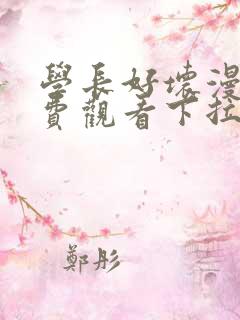 學長好壞漫
費觀看下拉
鄭彤